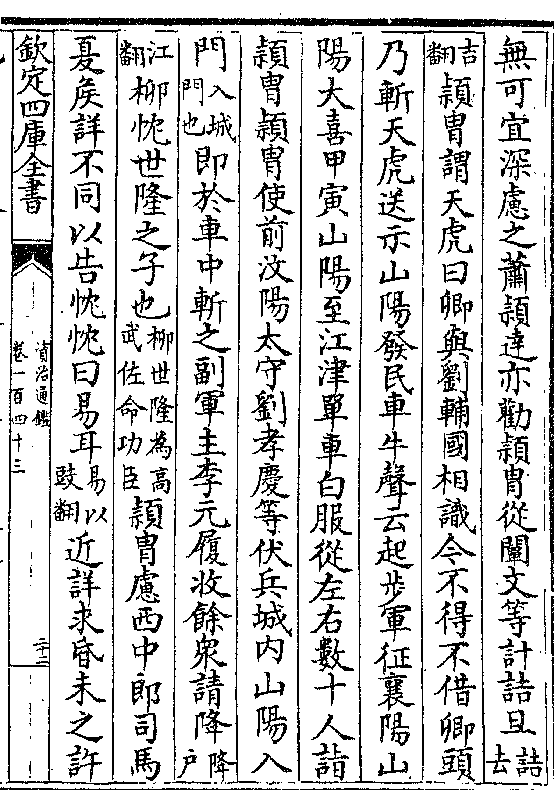 無可宜深慮之蕭頴達亦勸頴胄從闡文等計詰旦詰去
吉翻頴胄謂天虎曰卿與劉輔國相識今不得不借卿頭
乃斬天虎送示山陽發民車牛聲云起步軍征襄陽山
陽大喜甲寅山陽至江津單車白服從左右數十人詣
頴胄頴胄使前汶陽太守劉孝慶等伏兵城內山陽入
門入城門也即於車中斬之副軍主李元履收餘衆請降降戶
江翻柳忱世隆之子也柳世隆為高武佐命功臣頴胄慮西中郎司馬
夏侯詳不同以告忱忱曰易耳易以䜴翻近詳求昏未之許
欽定四庫全書
資治通鑑
卷一百四十三
二十二